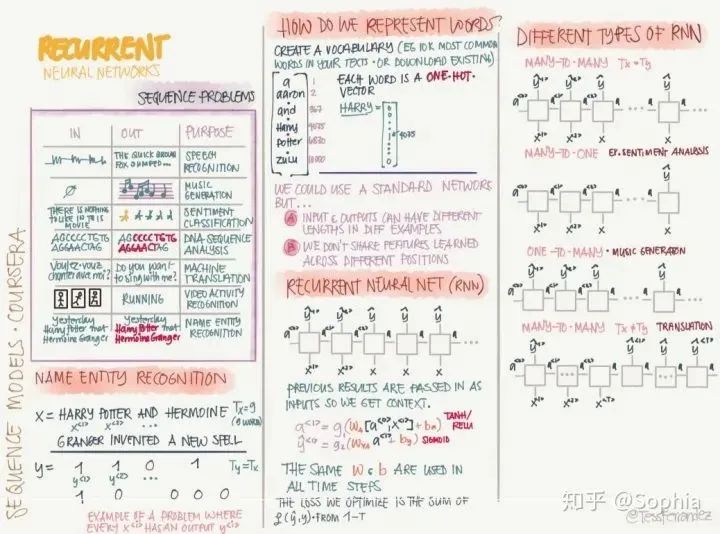 RECURRENT
NEURAL NETWORKS
SEQUENCE PROBLEMS
IN OUT PURPOSE
THE QUICK BROWN FOX JUMPED... SPEECH RECOGNITION
MUSIC GENERATION
THERE IS NOTHING TO LIKE IN THIS MOVIE SENTIMENT CLASSIFICATION
AGCCCCTGTG AGGAACTAG AGCCCCTGTG AGGAACTAG DNA-SEQUENCE ANALYSIS
Voulez-vous chanter avec moi? Do you want to sing with me? MACHINE TRANSLATION
RUNNING VIDEO ACTIVITY RECOGNITION
Yesterday Harry Potter met Hermoine Granger Yesterday Harry Potter met Hermoine Granger NAME ENTITY RECOGNITION
NAME ENTITY RECOGNITION
X = HARRY POTTER AND HERMOINE Tx=9
x<1> x<2> x<3> ... (9 WORDS)
GRANGER INVENTED A NEW SPELL
y = 1 1 0 1 Ty=Tx
y<1> y<2> y<3>
1 0 0 0 0
EXAMPLE OF A PROBLEM WHERE
EVERY X<i> HAS AN OUTPUT y<i>
SEQUENCE MODELS · COURSERA
HOW DO WE REPRESENT WORDS?
CREATE A VOCABULARY (EG 10K MOST COMMON
WORDS IN YOUR TEXTS · OR DOWNLOAD EXISTING)
a 1
aaron 2
and 367
Harry 4075
Potter 6830
zulu 10000
EACH WORD IS A ONE·HOT·
VECTOR
HARRY =
0
0
0
1 4075
0
0
WE COULD USE A STANDARD NETWORK
BUT...
A INPUT & OUTPUTS CAN HAVE DIFFERENT
LENGTHS IN DIFF EXAMPLES
B WE DON'T SHARE FEATURES LEARNED
ACROSS DIFFERENT POSITIONS
RECURRENT NEURAL NET (RNN)
ŷ<1> ŷ<2> ŷ ŷ ŷ
a<0> a<1> a a a a
x<1> x<2> x x x
PREVIOUS RESULTS ARE PASSED IN AS
INPUTS SO WE GET CONTEXT.
a<1> = g₁(Wa[a<0>, x<1>] + ba) TANH/RELU
ŷ<1> = g₂(Wya a<1> + by) SIGMOID
THE SAME W & b ARE USED IN
ALL TIME STEPS
THE LOSS WE OPTIMIZE IS THE SUM OF
ℒ(ŷ,y) · FROM 1-T
DIFFERENT TYPES OF RNN
MANY·TO·MANY Tx=Ty
ŷ<1> ŷ<2> ŷ ŷ
a<0> a a a
x<1> x<2> x x
MANY·TO·ONE EX. SENTIMENT ANALYSIS
ŷ
a<0> a a a
x<1> x<2> x x
ONE·TO·MANY · MUSIC GENERATION
ŷ<1> ŷ<2> ŷ ŷ
a<0> a a a
x
MANY·TO·MANY Tx≠Ty TRANSLATION
a<0>
x<1> x<2> x<Tx>
知乎 @Sophia
@TessFerrandez